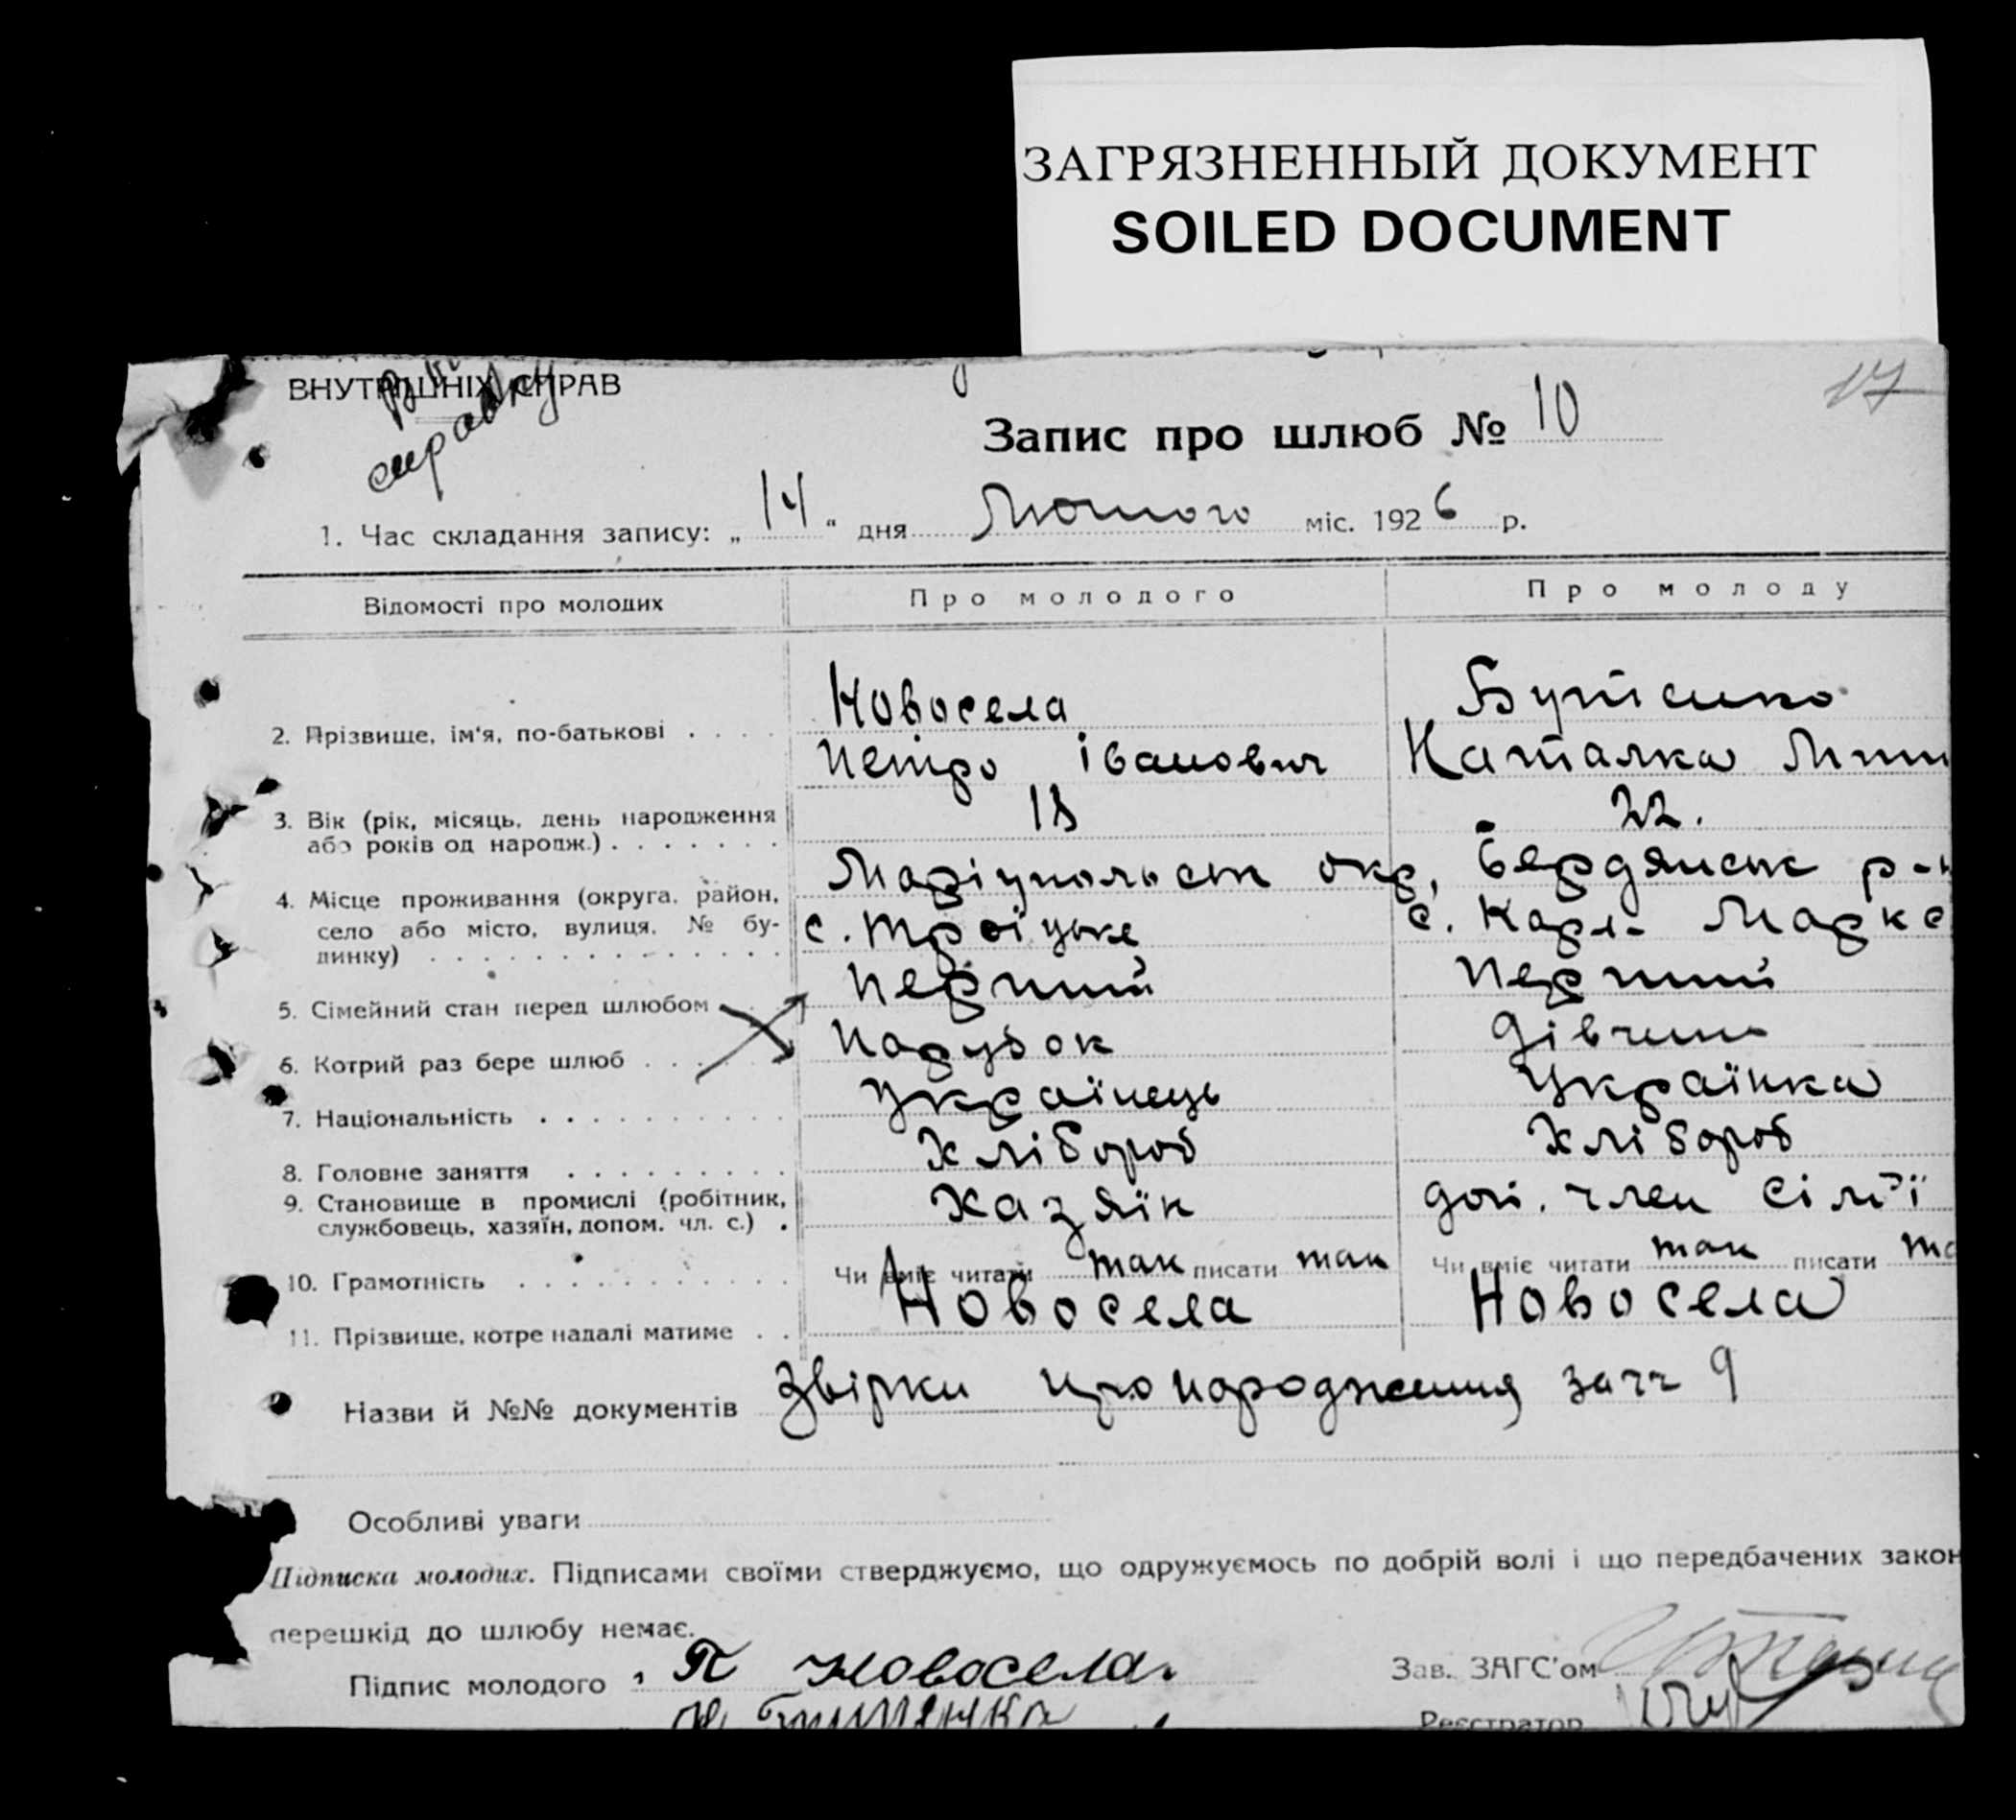 ЗАГРЯЗНЕННЫЙ ДОКУМЕНТ
SOILED DOCUMENT
ВНУТРІШНІХ СПРАВ
справку
17
Запис про шлюб № 10
1. Час складання запису: „ 14 “ дня Лютого міс. 1926 р.
Відомості про молодих Про молодого Про молоду
Новосела Бутенко
2. Прізвище, ім'я, по-батькові . . . .
Петро Іванович Наталка
18 22.
3. Вік (рік, місяць, день народження
або років од народж.) . . . . . . .
Маріупольськ окр, Бердянськ р-н
4. Місце проживання (округа, район,
село або місто, вулиця, № бу-
динку) . . . . . . . . . . . . . . .
с. Троїцьке с. Карл- Маркс
Перший Перший
5. Сімейний стан перед шлюбом
Парубок Дівчина
6. Котрий раз бере шлюб . . .
Українець Українка
7. Національність . . . . . . . . . .
Хлібороб Хлібороб
8. Головне заняття . . . . . . . . .
9. Становище в промислі (робітник,
службовець, хазяїн, допом. чл. с.) .
Хазяїн доп. член сім'ї
10. Грамотність . . . . . . . . . . . Чи вміє читати так писати так Чи вміє читати так писати та
Новосела Новосела
11. Прізвище, котре надалі матиме . .
Назви й №№ документів Звірки про народження 9
Особливі уваги
Підписка молодих. Підписами своїми стверджуємо, що одружуємось по добрій волі і що передбачених закон
перешкід до шлюбу немає.
Підпис молодого П Новосела. Зав. ЗАГС'ом
Реєстратор